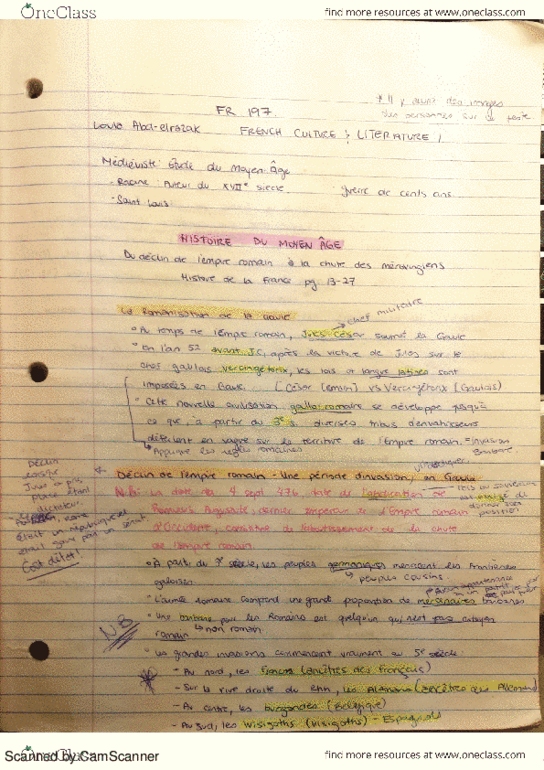 OneClass
find more resources at www.oneclass.com
FR 197
* Il y aura des images
des personnes sur le
Abd-elrazak FRENCH CULTURE & LITERATURE 1
Médiéviste: Étude du moyen Âge
- Racine: Auteur du XVIIe siècle
guerre de cents ans
- Saint Louis
HISTOIRE DU MOYEN ÂGE
Du déclin de l'empire romain à la chute des mérovingiens
Histoire de la France pg. 13-27
La Romanisation de la Gaule
chef militaire
Au temps de l'Empire romain, Jules César soumet la Gaule
En l'an 52 avant J.C, après la victoire de Jules sur le
chef gaulois vercingétorix, les lois et langue latines sont
imposées en Gaule. [César (romain) vs Vercingétorix (Gaulois)
Cette nouvelle civilisation gallo-romaine se développe jusqu'à
ce que, à partir du 3e s. diverses tribus d'envahisseurs
déferlent en vague sur le territoire de l'Empire romain. = invasion
Barbare
Applique les romaines
Déclin de l'empire romain - Une période d'invasion, en Gaule
N.B: La date du 4 sept 476, date de l'abdication de
Romulus Augustule, dernier empereur de l'Empire romain
d'Occident, constitue l'aboutissement de la chute
de l'empire romain
Déclin
Jules a pris
étant
dictateur
était
était par un sénat.
Coup d'état!
obligé de
donner
position
À partir du 3e siècle, les peuples germaniques menacent les frontières
gauloises
peuples cousins
L'armée romaine comprend une grande proportion de mercenaires
Une barbare pour les Romains est quelqu'un qui n'est pas citoyen
romain
non romain
N.B
Les grandes invasions commencent vraiment au 5e siècle:
- Au nord, les Francs (ancêtres des français)
- Sur la rive droite du Rhin, les Alamans (ancêtres des
- Au centre, les burgondes (Belgique)
- Au Sud, les wisigoths (visigoths) - Espagnols
Scanned by CamScanner
OneClass
find more resources at www.oneclass.com